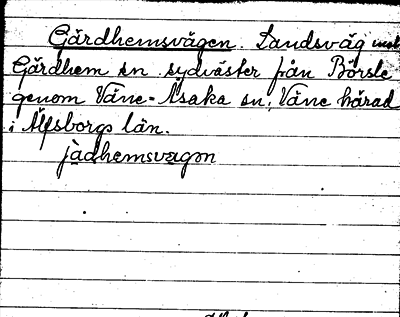 Gärdhemsvägen. Landsväg mot
Gärdhem sn sydväster från Börsle
genom Väne-Åsaka sn, Väne härad
i Älfsborgs län.
jàdhemsvagən